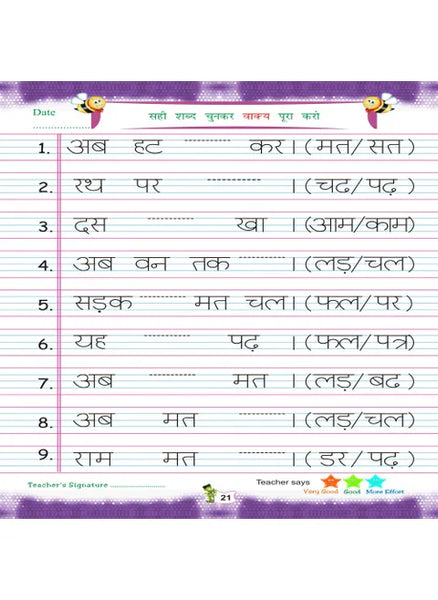 Date ..................
सही शब्द चुनकर वाक्य पूरा करो
1. अब हट --------- कर। (मत/सत)
2. रथ पर --------- । (चढ/पढ़)
3. दस --------- खा। (आम/काम)
4. अब वन तक --------- । (लड़/चल)
5. सड़क --------- मत चल। (फल/पर)
6. यह --------- पढ़ । (फल/पत्र)
7. अब --------- मत । (लड़/बढ)
8. अब मत --------- । (लड़/चल)
9. राम मत --------- । (डर/पढ़)
Teacher's Signature ......................
21
Teacher says
Very Good Good More Effort